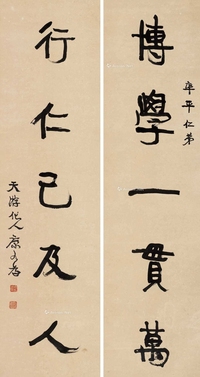 博學一貫萬
平仁弟
行仁己及人
天游化人康有為